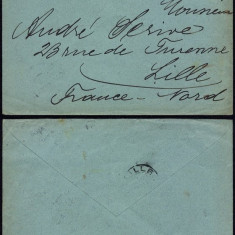 Monsieur
André Serive
23 rue de Turenne
Lille
France - Nord